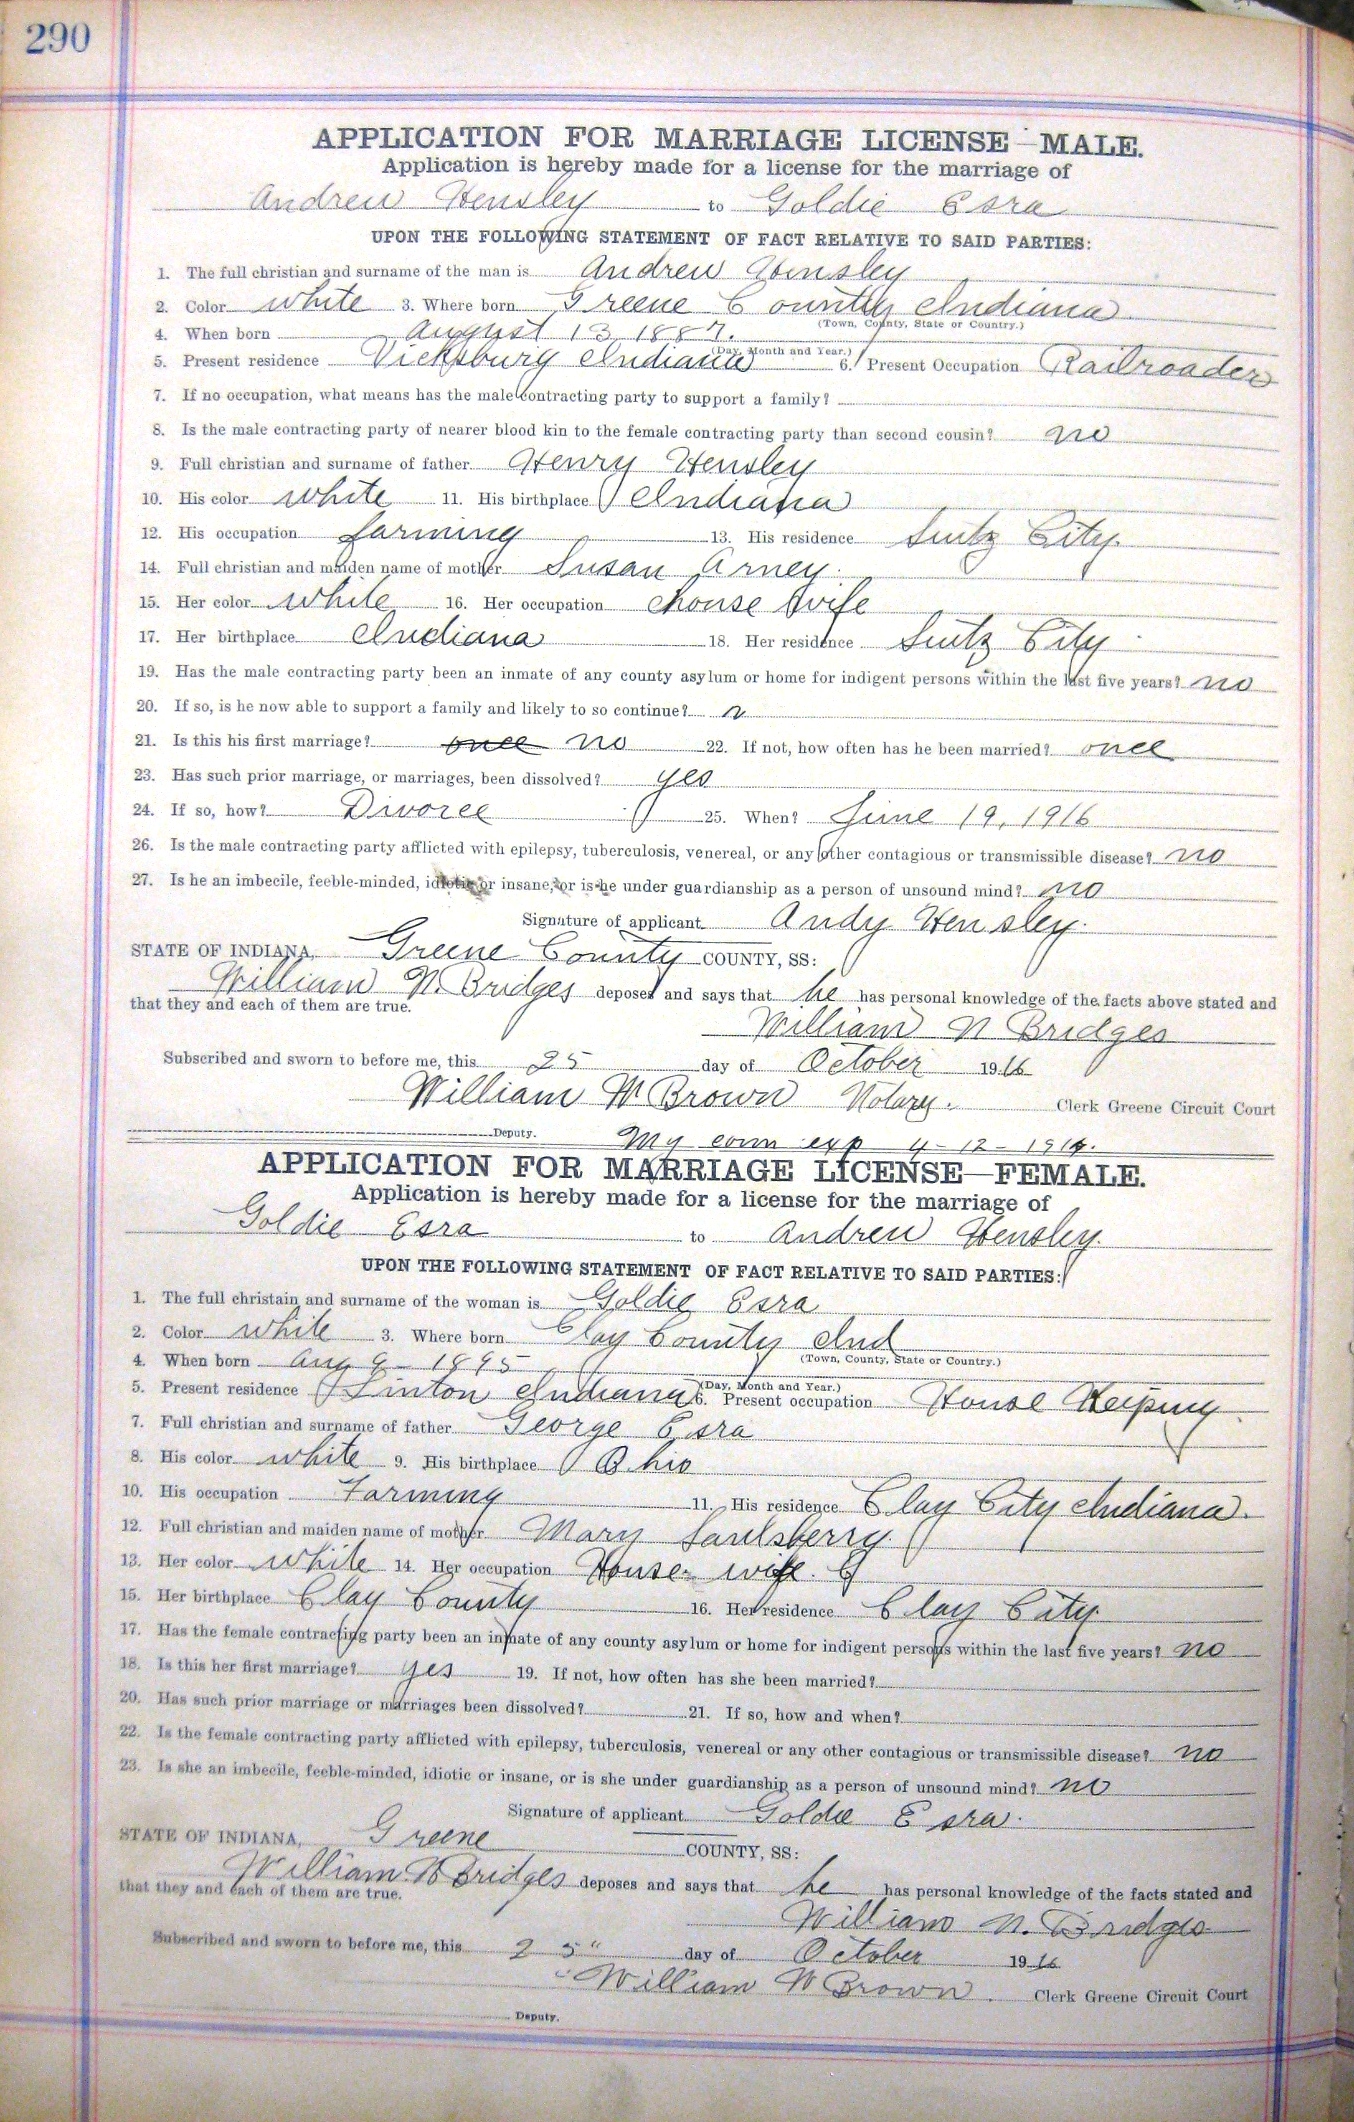 290
APPLICATION FOR MARRIAGE LICENSE—MALE.
Application is hereby made for a license for the marriage of
Andrew Hensley to Goldie Esra
UPON THE FOLLOWING STATEMENT OF FACT RELATIVE TO SAID PARTIES:
1. The full christian and surname of the man is Andrew Hensley
2. Color White 3. Where born Greene County Indiana
(Town, County, State or Country.)
4. When born August 13 1887.
(Day, Month and Year.)
5. Present residence Vicksburg Indiana 6. Present Occupation Railroader
7. If no occupation, what means has the male contracting party to support a family?
8. Is the male contracting party of nearer blood kin to the female contracting party than second cousin? no
9. Full christian and surname of father Henry Hensley
10. His color white 11. His birthplace Indiana
12. His occupation farming 13. His residence City.
14. Full christian and maiden name of mother Susan Arney.
15. Her color white 16. Her occupation house wife
17. Her birthplace Indiana 18. Her residence City.
19. Has the male contracting party been an inmate of any county asylum or home for indigent persons within the last five years? no
20. If so, is he now able to support a family and likely to so continue?
21. Is this his first marriage? once no 22. If not, how often has he been married? once
23. Has such prior marriage, or marriages, been dissolved? yes
24. If so, how? Divorce 25. When? June 19, 1916
26. Is the male contracting party afflicted with epilepsy, tuberculosis, venereal, or any other contagious or transmissible disease? no
27. Is he an imbecile, feeble-minded, idiotic or insane, or is he under guardianship as a person of unsound mind? no
Signature of applicant Andy Hensley.
STATE OF INDIANA, Greene County COUNTY, SS:
William N. Bridges deposes and says that he has personal knowledge of the facts above stated and
that they and each of them are true.
William N Bridges
Subscribed and sworn to before me, this 25 day of October 1916
William M Brown Notary. Clerk Greene Circuit Court
Deputy. My com exp 4-12-
APPLICATION FOR MARRIAGE LICENSE—FEMALE.
Application is hereby made for a license for the marriage of
Goldie Esra to Andrew Hensley.
UPON THE FOLLOWING STATEMENT OF FACT RELATIVE TO SAID PARTIES:
1. The full christain and surname of the woman is Goldie Esra
2. Color white 3. Where born Clay County Ind
(Town, County, State or Country.)
4. When born Aug 9 - 1895
(Day, Month and Year.)
5. Present residence Linton Indiana 6. Present occupation House Keeping.
7. Full christian and surname of father George Esra
8. His color white 9. His birthplace Ohio
10. His occupation Farming 11. His residence Clay City Indiana.
12. Full christian and maiden name of mother Mary Saulsberry.
13. Her color white 14. Her occupation House-wife.
15. Her birthplace Clay County 16. Her residence Clay City.
17. Has the female contracting party been an inmate of any county asylum or home for indigent persons within the last five years? no
18. Is this her first marriage? yes 19. If not, how often has she been married?
20. Has such prior marriage or marriages been dissolved? 21. If so, how and when?
22. Is the female contracting party afflicted with epilepsy, tuberculosis, venereal or any other contagious or transmissible disease? no
23. Is she an imbecile, feeble-minded, idiotic or insane, or is she under guardianship as a person of unsound mind? no
Signature of applicant Goldie Esra.
STATE OF INDIANA, Greene COUNTY, SS:
William N Bridges deposes and says that he has personal knowledge of the facts stated and
that they and each of them are true.
William N. Bridges
Subscribed and sworn to before me, this 25" day of October 1916
William M Brown. Clerk Greene Circuit Court
Deputy.